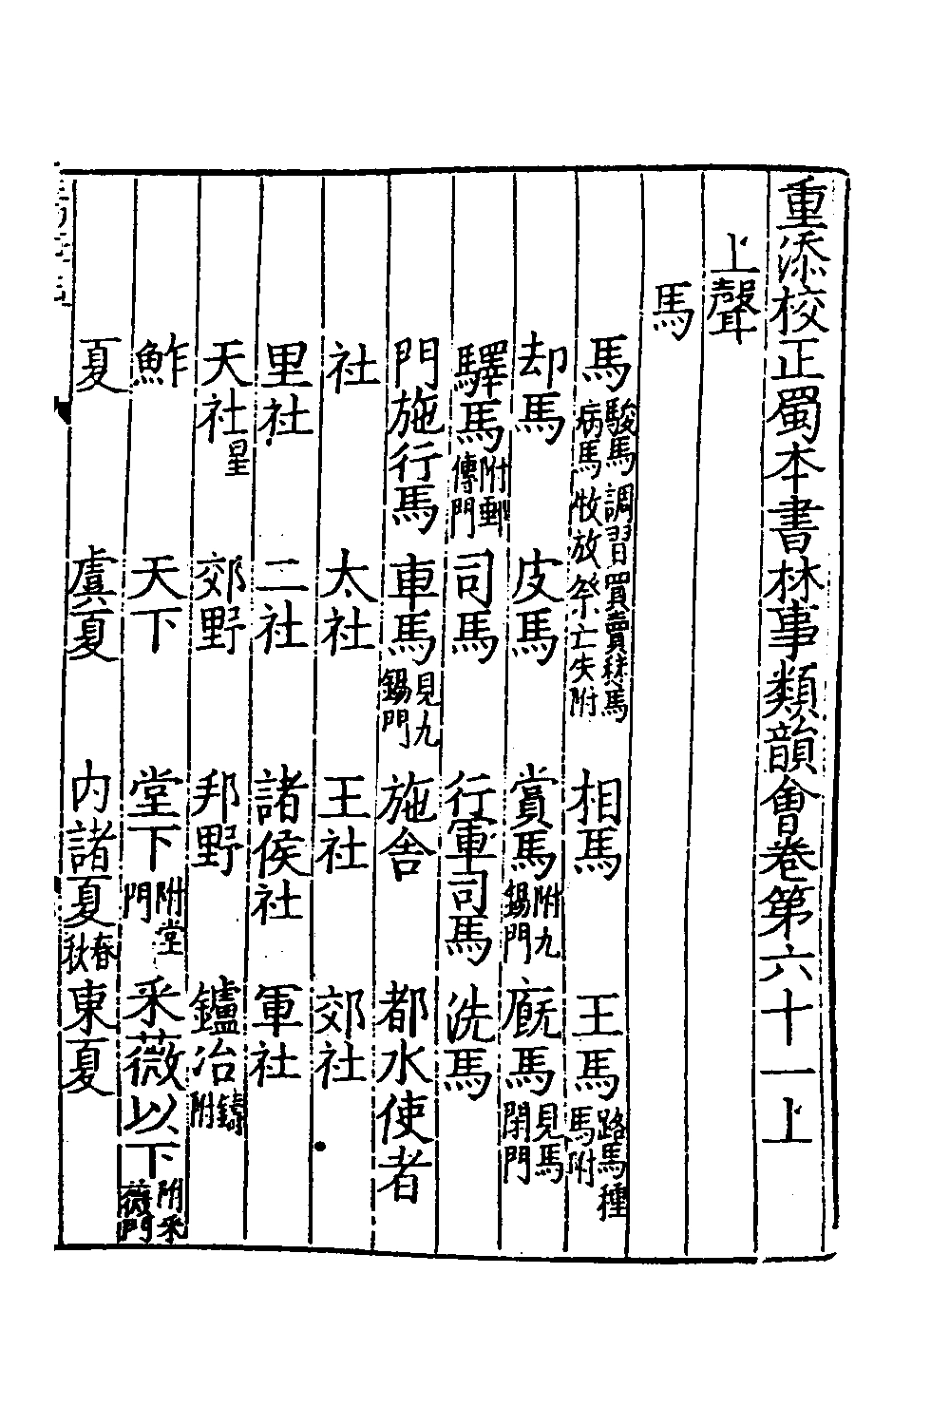 重添校正蜀本書林事類韻會卷第六十一上
上聲
馬
馬 駿馬調習買賣秣馬病馬牧放祭亡失附 相馬 王馬 路馬種馬附
却馬 皮馬 賞馬 附九錫門 廐馬 見馬閑門
驛馬 附郵傳門 司馬 行軍司馬 洗馬
門施行馬 車馬 見九錫門 施舍 都水使者
社 太社 王社 郊社
里社 二社 諸侯社 軍社
天社 星 郊野 邦野 鑪冶 鑄附
鮓 天下 堂下 附堂門 采薇以下 附采薇門
夏 虞夏 内諸夏 春秋 東夏